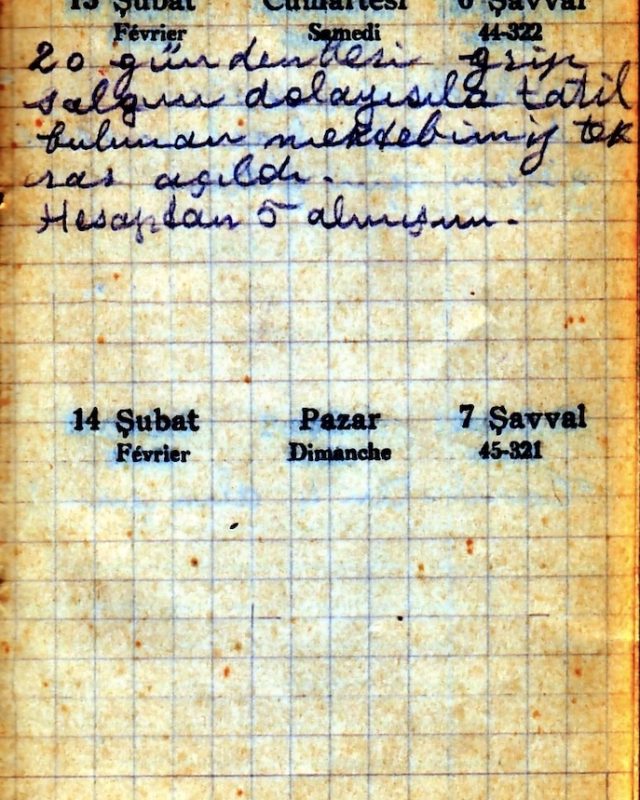 13 Şubat Cumartesi 6 Şavval
Février Samedi 44-322
20 gündenberi grip
salgını dolayısıla tatil
bulunan mektebimiz tek
rar açıldı.
Hesaptan 5 almışım.
14 Şubat Pazar 7 Şavval
Février Dimanche 45-321